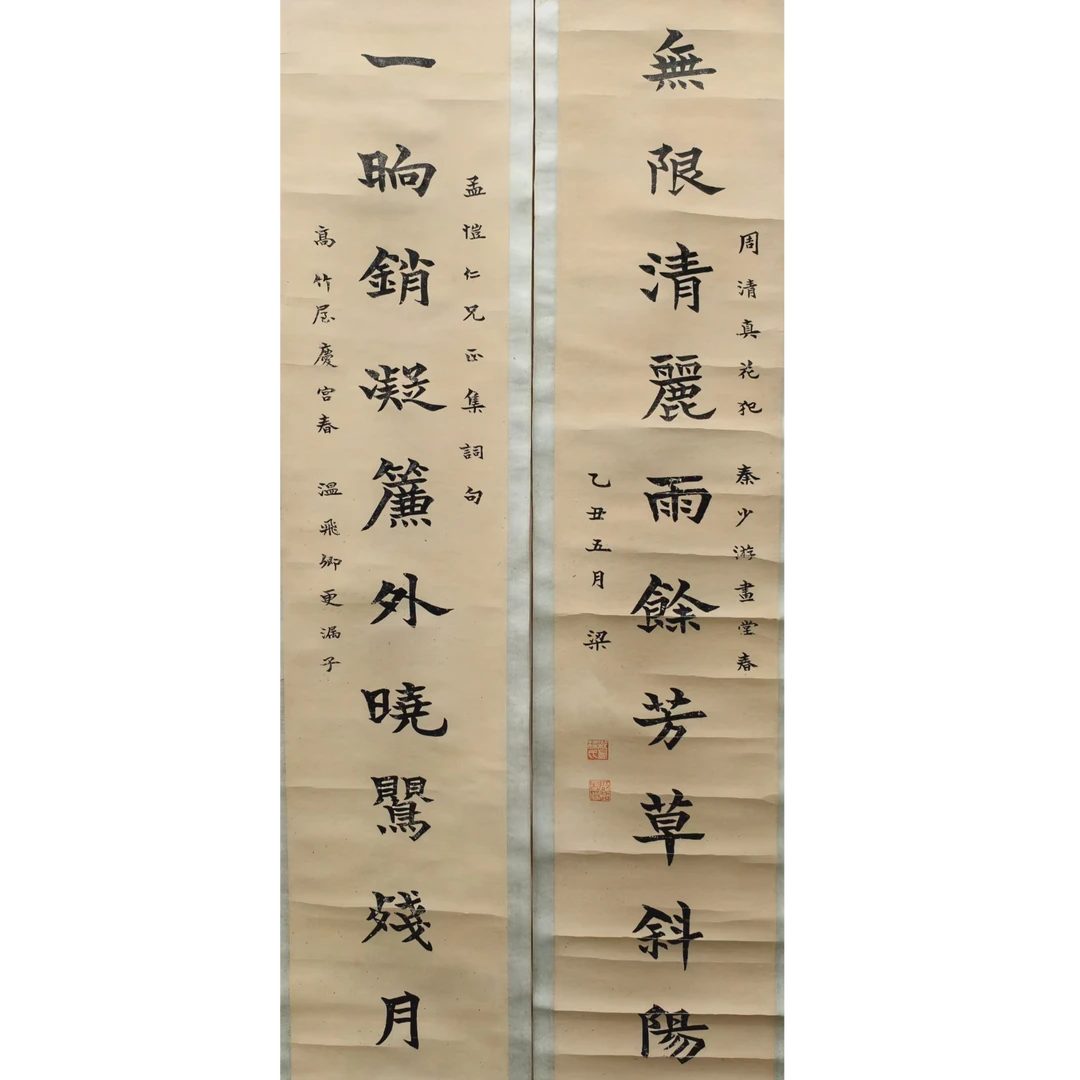 孟愷仁兄正集詞句
一晌銷凝簾外曉鸎殘月
高竹屋慶宮春 溫飛卿更漏子
周清真花犯 秦少游畫堂春
無限清麗雨餘芳草斜陽
乙丑五月 梁